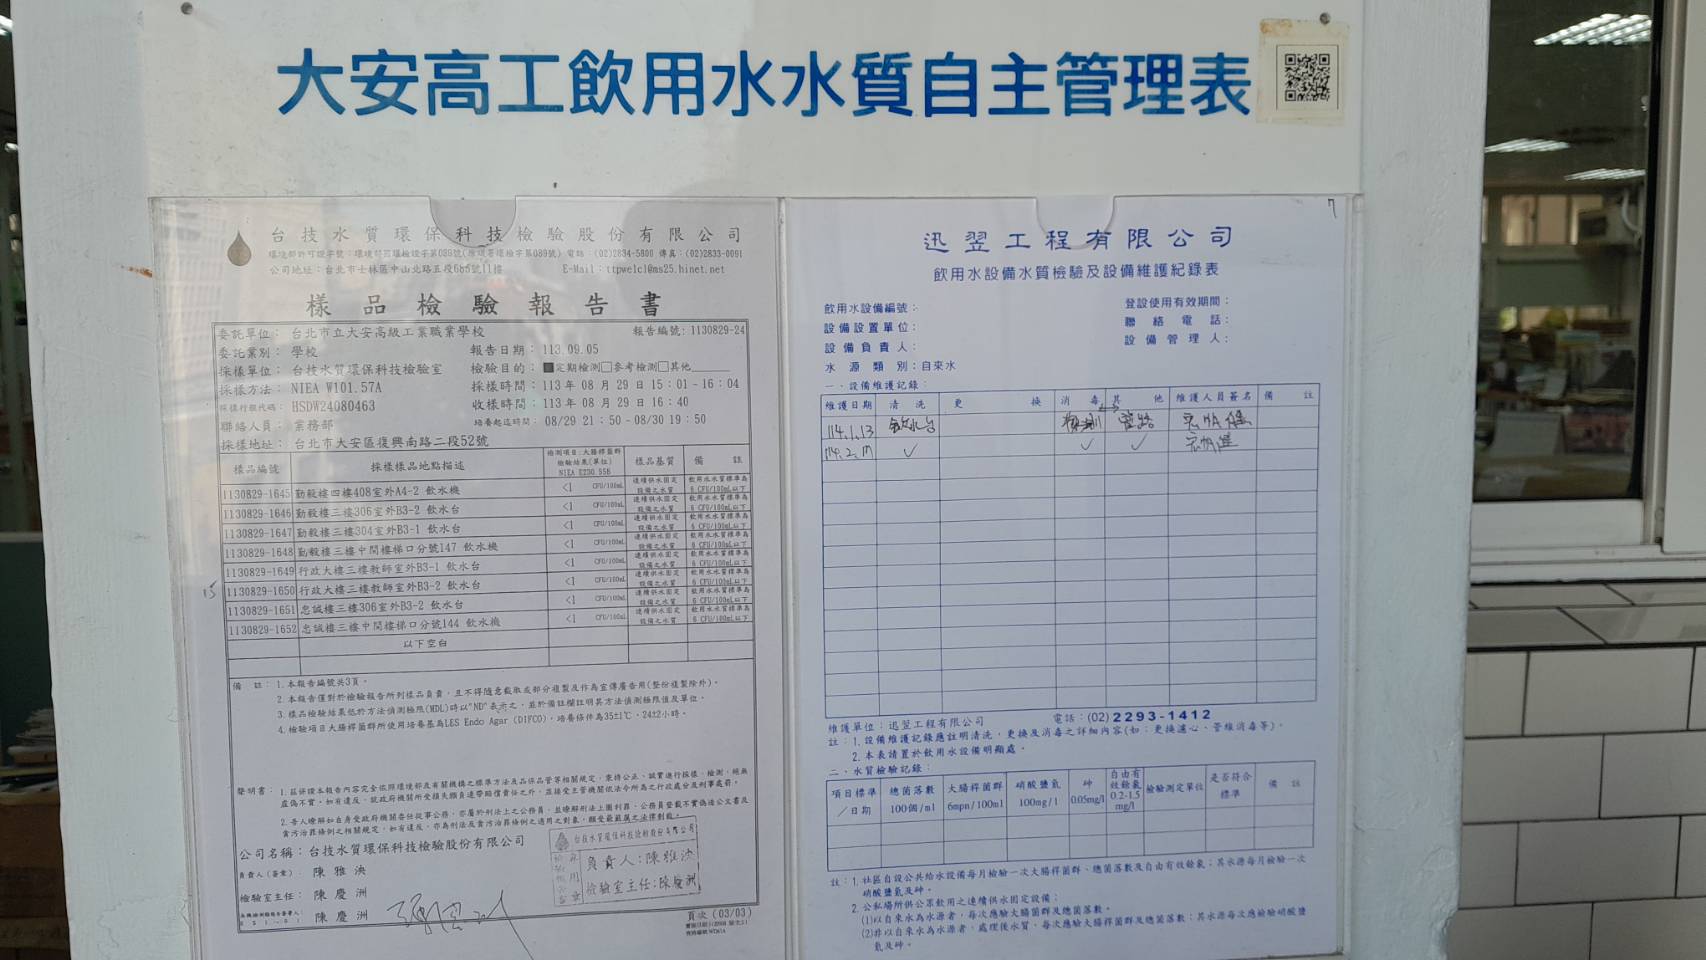 大安高工飲用水水質自主管理表
台技水質環保科技檢驗股份有限公司
公司地址：台北市士林區中山北路五段685號11樓 E-Mail：ttpwelcl@ms25.hinet.net
樣品檢驗報告書
委託單位： 台北市立大安高級工業職業學校 報告編號: 1130829-24
委託業別： 學校 報告日期：113.09.05
採樣單位： 台技水質環保科技檢驗室 檢驗目的：■定期檢測□參考檢測□其他
採樣方法： NIEA W101.57A 採樣時間：113 年 08 月 29 日 15：01 - 16：04
採樣行程代碼： HSDW24080463 收樣時間：113 年 08 月 29 日 16：40
聯絡人員： 業務部 培養起迄時間： 08/29 21：50 - 08/30 19：50
採樣地址： 台北市大安區復興南路二段52號
樣品編號 採樣樣品地點描述 檢測項目:大腸桿菌群 檢驗結果(單位) NIEA E230.55B 樣品基質 備 註
1130829-1645 勤毅樓四樓408室外A4-2 飲水機 <1 CFU/100mL 連續供水固定設備之水質 飲用水水質標準為6 CFU/100mL以下
1130829-1646 勤毅樓三樓306室外B3-2 飲水台 <1 CFU/100mL 連續供水固定設備之水質 飲用水水質標準為6 CFU/100mL以下
1130829-1647 勤毅樓三樓304室外B3-1 飲水台 <1 CFU/100mL 連續供水固定設備之水質 飲用水水質標準為6 CFU/100mL以下
1130829-1648 勤毅樓三樓中間樓梯口分號147 飲水機 <1 CFU/100mL 連續供水固定設備之水質 飲用水水質標準為6 CFU/100mL以下
1130829-1649 行政大樓三樓教師室外B3-1 飲水台 <1 CFU/100mL 連續供水固定設備之水質 飲用水水質標準為6 CFU/100mL以下
1130829-1650 行政大樓三樓教師室外B3-2 飲水台 <1 CFU/100mL 連續供水固定設備之水質 飲用水水質標準為6 CFU/100mL以下
1130829-1651 忠誠樓三樓306室外B3-2 飲水台 <1 CFU/100mL 連續供水固定設備之水質 飲用水水質標準為6 CFU/100mL以下
1130829-1652 忠誠樓三樓中間樓梯口分號144 飲水機 <1 CFU/100mL 連續供水固定設備之水質 飲用水水質標準為6 CFU/100mL以下
15
以下空白
備 註： 1.本報告編號共3頁。
2.本報告僅對於檢驗報告所列樣品負責，且不得隨意截取或部分複製及作為宣傳廣告用(整份複製除外)。
3.樣品檢驗結果低於方法偵測極限(MDL)時以"ND"表示之，並於備註欄註明其方法偵測極限值及單位。
4.檢驗項目大腸桿菌群所使用培養基為LES Endo Agar (DIFCO)，培養條件為35±1℃、24±2小時。
聲明書： 1.茲保證本報告內容完全依照環境部及有關機構之標準方法及品保品管等相關規定，秉持公正、誠實進行採樣、檢測，絕無
虛偽不實，如有違反，就政府機關所受損失願負連帶賠償責任之外，並接受主管機關依法令所為之行政處分及刑事處罰。
2.吾人瞭解如自身受政府機關委任從事公務，亦屬於刑法上之公務員，並瞭解刑法上圖利罪、公務員登載不實偽造公文書及
貪污治罪條例之相關規定，如有違反，亦為刑法及貪污治罪條例之適用之對象，願受最嚴厲之法律制裁。
公司名稱：台技水質環保科技檢驗股份有限公司
負責人(簽章)： 陳雅泱
檢驗室主任： 陳慶洲
陳慶洲
台技水質環保科技檢驗股份有限公司
負責人:陳雅泱
檢驗室主任:陳慶洲
頁次 (03/03)
7
迅翌工程有限公司
飲用水設備水質檢驗及設備維護紀錄表
飲用水設備編號： 登設使用有效期間：
設備設置單位： 聯絡電話：
設備負責人： 設備管理人：
水源類別：自來水
一、設備維護記錄：
維護日期 清洗 更換 消毒 其他 維護人員簽名 備註
114.1.13 飲水台 管路
114.2.17 ✓ ✓ ✓
維護單位：迅翌工程有限公司 電話：(02) 2293-1412
註：1.設備維護記錄應註明清洗，更換及消毒之詳細內容(如：更換濾心、管維消毒等)。
2.本表請置於飲用水設備明顯處。
二、水質檢驗記錄：
項目標準／日期 總菌落數 100個/ml 大腸桿菌群 6mpn/100ml 硝酸鹽氮 10mg/l 砷 0.05mg/l 自由有效餘氯 0.2-1.5 mg/l 檢驗測定單位 是否符合標準 備註
註：1.社區自設公共給水設備每月檢驗一次大腸桿菌群、總菌落數及自由有效餘氯；其水源每月檢驗一次
硝酸鹽氮及砷。
2.公私場所供公眾飲用之連續供水固定設備：
(1)以自來水為水源者，每次應驗大腸菌群及總菌落數。
(2)非以自來水為水源者，處理後水質，每次應驗大腸桿菌群及總菌落數；其水源每次應檢驗硝酸鹽
氮及砷。